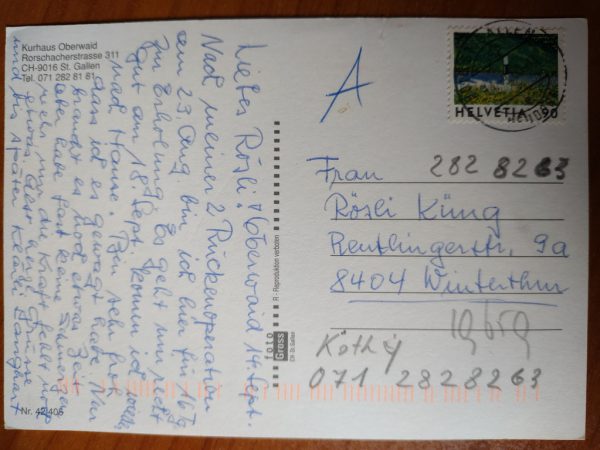 Kurhaus Oberwaid
Rorschacherstrasse 311
CH-9016 St. Gallen
Tel. 071 282 81 81
Oberwaid 14. Sept.
Liebes Rösli!
Nach meiner 2 Rückenoperation
am 23. Aug. bin ich hier für 16 Tg
zur Erholung. Es geht mir recht
gut am 18. Sept. komm ich wieder
nach Hause. Bin sehr froh
dass ich es gewagt habe. Nur
braucht es noch etwas Zeit
aber habe fast keine Schmerzen
mehr nur die Kraft fehlt noch
etwas. Alles herzl. Grüsse
und bis später Kläri
Nr. 42 405
R - Reproduktion verboten
foto
Gross
St. Gallen
A
HELVETIA 90
282 82 63
Frau
Rösli Küng
Reutlingerstr. 9a
8404 Winterthur
Käthy
071 282 82 63